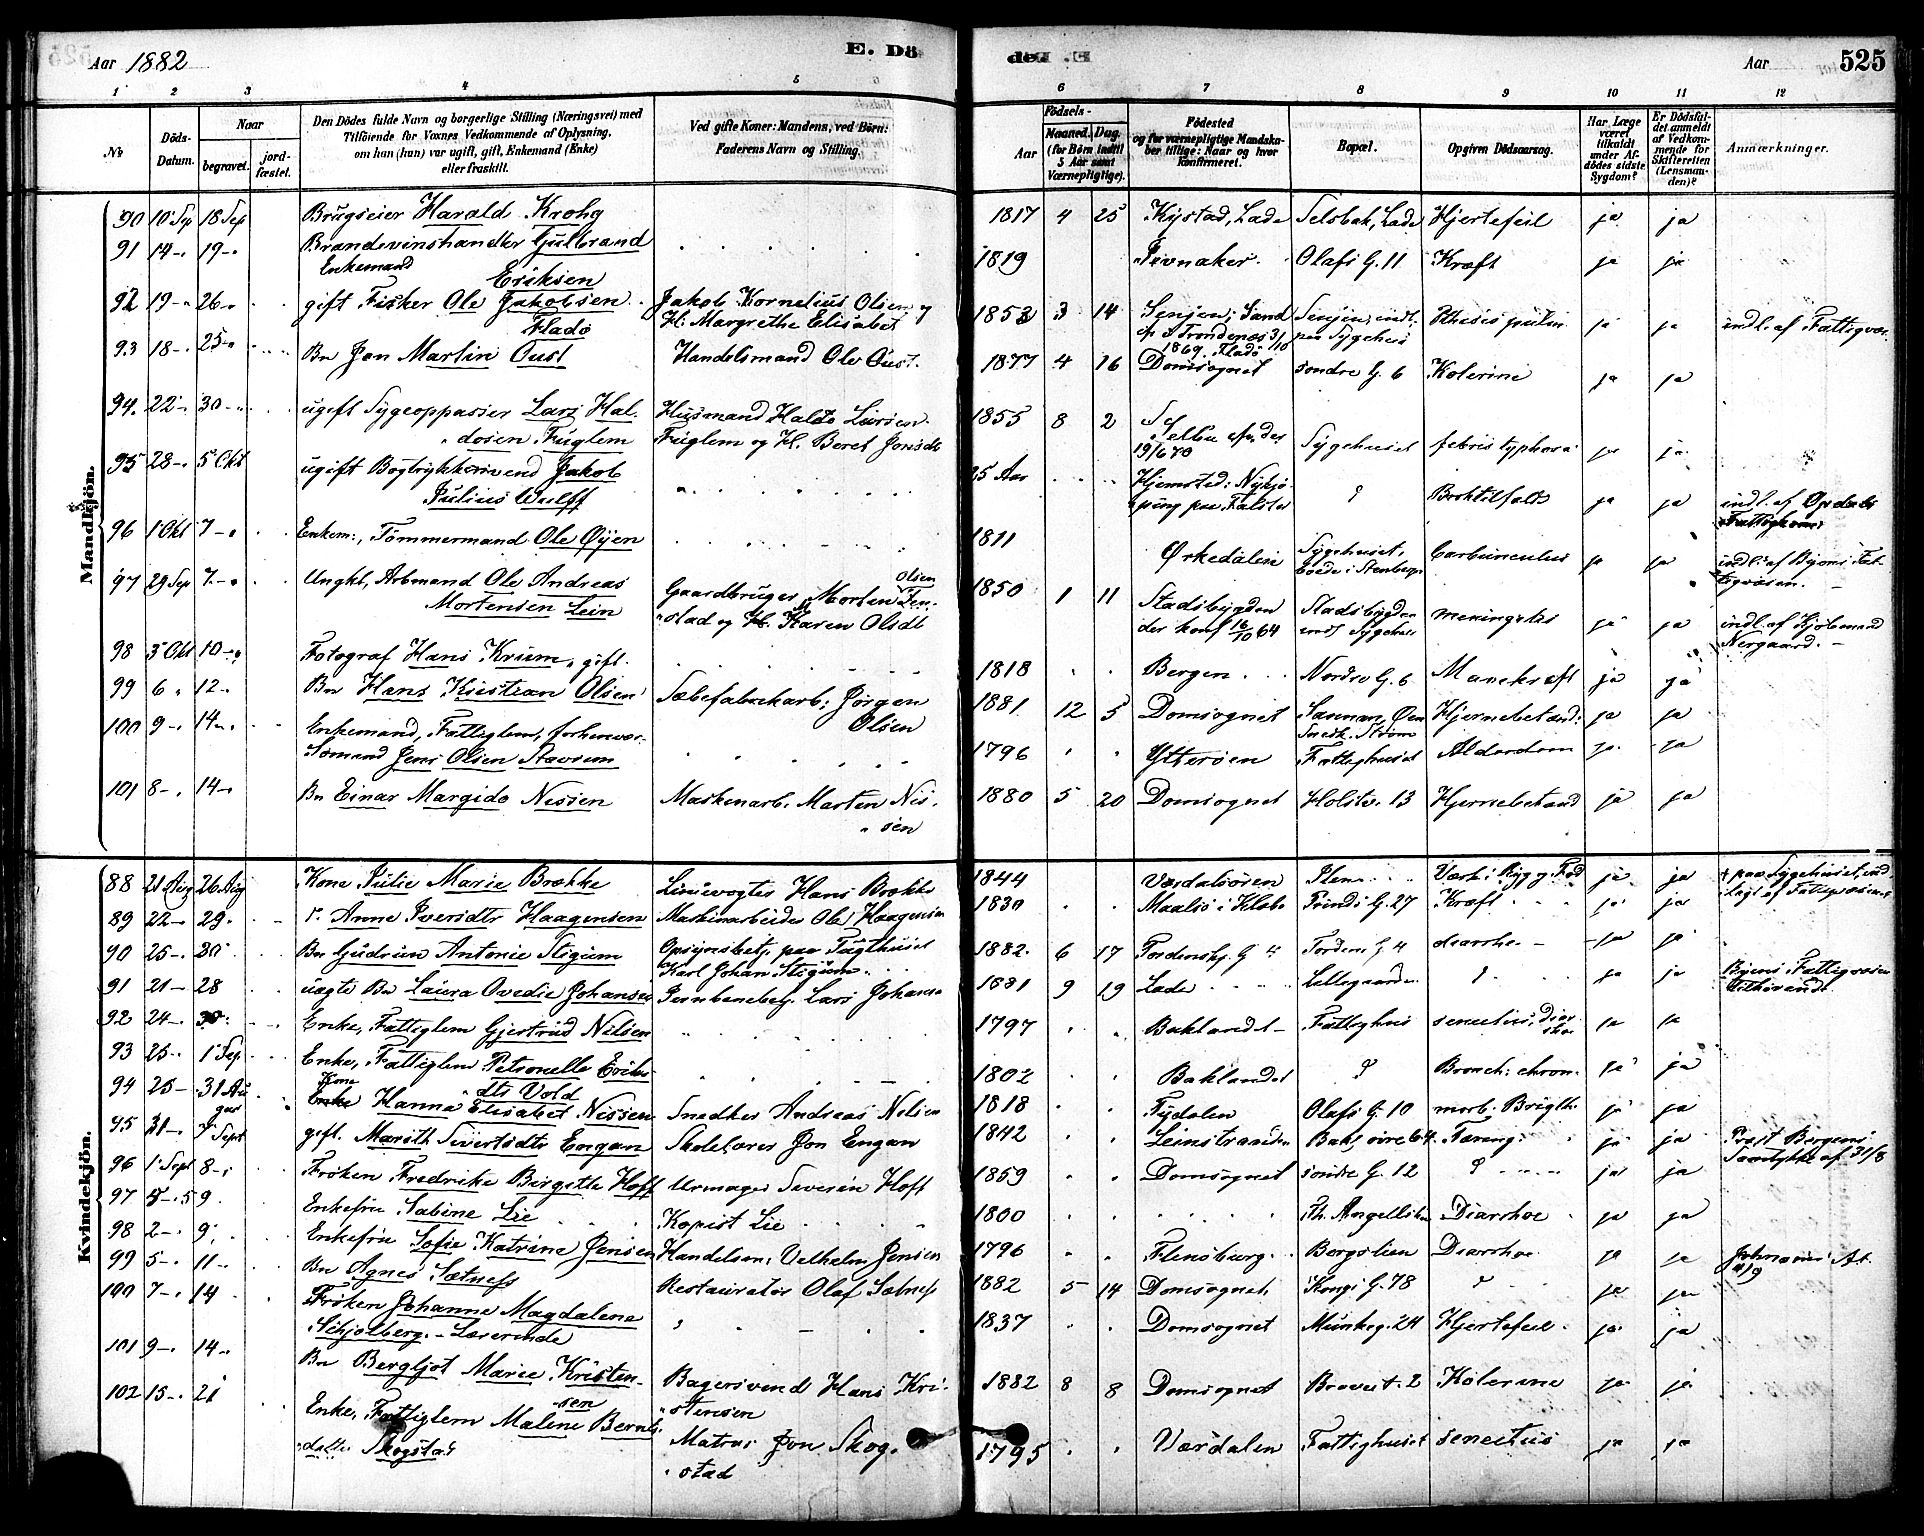 Aar 1882
E. Dö
de
Aar
525
1 2 3 4 5 6 7 8 9 10 11 12
№
Döds-Datum.
Naar
begravet.
jord-fæstet.
Den Dödes fulde Navn og borgerlige Stilling (Næringsvei) med
Tilföiende for Voxnes Vedkommende af Oplysning,
om han (hun) var ugift, gift, Enkemand (Enke)
eller fraskilt.
Ved gifte Koner: Mandens, ved Börn:
Faderens Navn og Stilling.
Födsels-
Aar
Maaned. Dag.
(for Börn indtil
5 Aar samt
Værnepligtige).
Födested
og for værnepligtige Mandska-
ber tillige: Naar og hvor
konfirmeret.
Bopæl.
Opgiven Dödsaarsag.
Har Læge
været
tilkaldt
under Af-
dödes sidste
Sygdom?
Er Dödsfal-
det anmeldt
af Vedkom-
mende for
Skifteretten
(Lensman-
den)?
Anmærkninger.
Mandkjön.
90 10 Sep 18 Sep Brugseier Harald Krohg 1817 4 25 Kystad, Lade Selsbak, Lade Hjertefeil ja ja
91 14 19 Brandevinshandler Gulbrand
Enkemand Eriksen 1819 Jevnaker Olafs G. 11 Kræft ja ja
92 19 26 gift Fisker Ole Jakobsen
Fladö Jakob Kornelius Olsen og
H. Margrethe Elisabet 1853 3 14 Senjen, Sand
1869. Fladö Senjen, indl.
paa Sygehus ja ja indl. af Fattigvæs.
93 18 25 Bn Jon Martin Oust Handelsmand Ole Oust. 1877 4 16 Domsognet söndre G. 6 Kolerine ja ja
94. 22 30 ugift Sygeoppasser Lars Hal-
dosen Fuglem Husmand Haldo Larsen
Fuglem og H. Beret Jonsdt 1855 8 2 Selbu
19/6 70 Sygehuset febris typhosa ja ja
95 28 5 Okt ugift Bogtrykkersvend Jakob
Julius Wulff 25 Aar Hjemsted: Nykjö-
ping paa Falster ja ja indl. af Opdals
96 1 Okt 7 Enkem:, Tömmermand Ole Öyen 1811 Örkedalen Sygehuset, Carbunculus ja ja indl. af Byens Fat-
tigvæsen.
97 29 Sep 7 Ungkl, Arbmand Ole Andreas
Mortensen Lein Gaardbruger Morten Olsen Ten-
stad og H. Karen Olsdt 1850 1 11 Stadsbygden
der konf 16/10 64 Stadsbygden
indl Sygehus meningitis ja ja indl. af Kjöbmand
Nergaard.
98 3 Okt 10 Fotograf Hans Krum, gift. 1818 Bergen Nordre G. 6 Mavekræft ja ja
99 6 12 Bn Hans Kristian Olsen Sæbefabrikarb: Jörgen
Olsen 1881 12 5 Domsognet Hjernebetænd: ja ja
100 9 14 Enkemand, Fattiglem, forhenvær.
Sömand Jens Olsen Stavrum 1796 Ytteröen Fattighuset Alderdom ja ja
101 8 14 Bn Einar Margido Nissen Maskinarb. Morten Nis-
sen 1880 5 20 Domsognet Holstv. 13 Hjernebetænd ja ja
Kvindekjön.
88 21 Aug 26 Aug Kone Julie Marie Brække Linievogter Hans Brække 1844 Værdalsören ja ja † paa Sygehuset, ind-
lagt af Fattigvæsenet
89 22 29 Anne Iversdtr Haagensen Maskinarbeider Ole Haagensen 1830 Prinds G. 27 Kræft ja ja
90 25 30 Bn Gudrun Antonie Stigum Opsynsbetj. paa Tugthuset
Karl Johan Stigum 1882. 6 17 Tordenskj. G 4 Tordens G 4 diarrhe ja ja
91 21 28 uægte Bn Laura Ovedie Johansen Jernbanebetj. Lars Johansen 1881 9 19 Lade Lillegaarden ? ja ja Byens Fattigvæsen
92 24 30 Enke, Fattiglem Gjertrud Nilsen 1797 Baklandet Fattighus senectus, diar-
rhoe ja ja
93 25 1 Sep Enke, Fattiglem Petronelle Eriks-
dtr Vold 1802 Baklandet ? Bronch: chron. ja ja
94 25 31 Au
gus Kone Hanna Elisabet Nissen Snedker Andreas Nilsen 1818 Tydalen Olafs G. 10 morb. Brigth. ja ja
95 31 7 Sept gift. Marith Sivertsdtr Engan Skolelærer Jon Engan 1842 Leinstranden Bakl. övre 64 Tæring ja ja Prost Bergens
96 1 Sept 8 Fröken Fredrikke Birgitte Hoff Urmager Severin Hoff 1859 Domsognet söndre G. 12 ? ja ja
97 5 9 Enkefru Sabine Lie Kopist Lie 1800 Diarrhoe ja ja
98 2 9 Enkefru Sofie Katrine Jensen Handelsm. Vilhelm Jensen 1796 Flensburg Bergslien Diarrhoe ja ja
99 5 11 Bn Agnes Sætness Restauratör Olaf Sætness 1882 5 14 Domsognet Kongs G. 78 ? ja ja
100 7 14 Fröken Johanne Magdalene
Schjölberg. Lærerinde 1837 Domsognet Munkeg. 24 Hjertefeil ja ja
101 9 14 Bn Bergljot Marie Kristen-
sen Bagersvend Hans Kri-
stensen 1882 8 8 Domsognet Kolerine ja ja
102 15 21 Enke, Fattiglem Malene Bernts-
datter Skogstad Matros Jon Skog-
stad 1795 Værdalen Fattighuset senectus ja ja